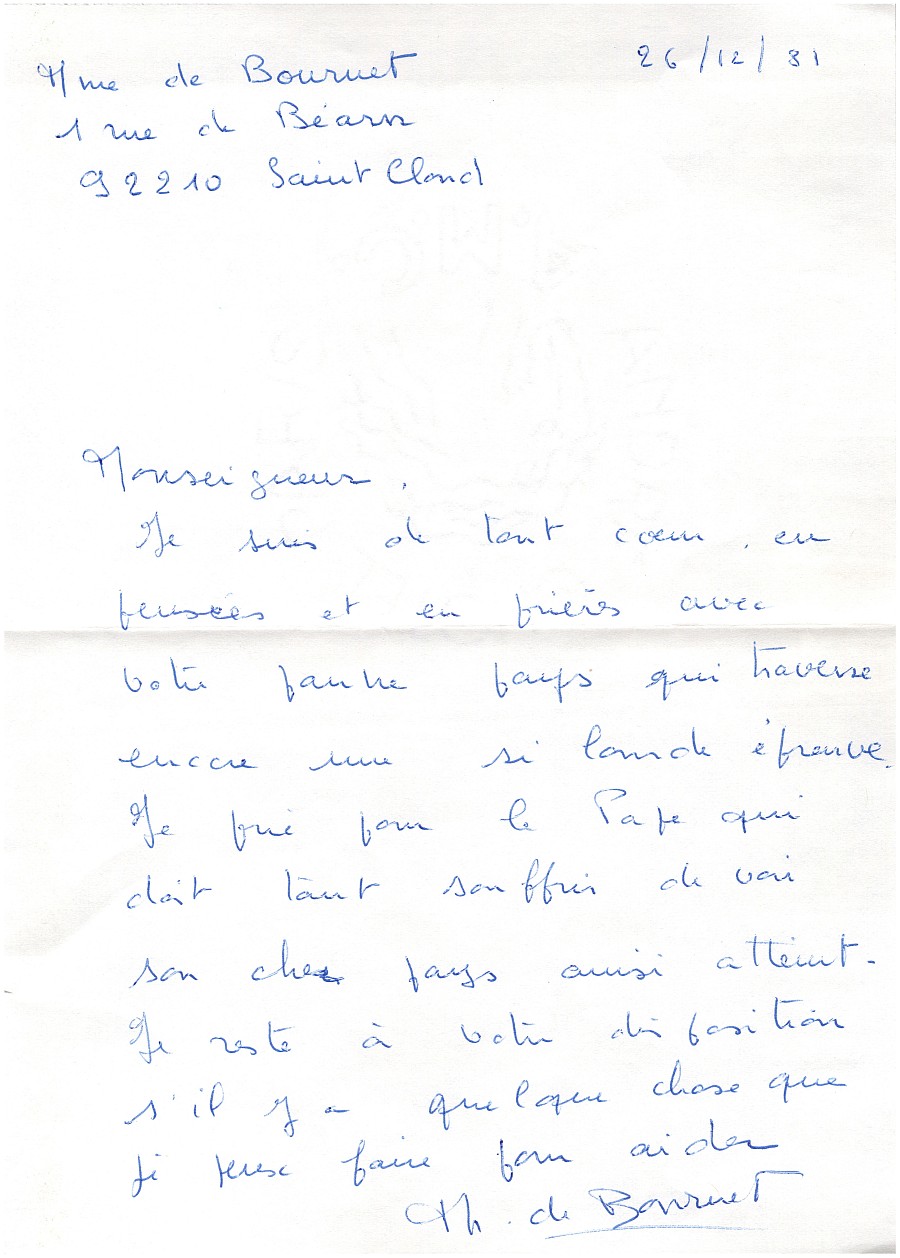 Mme de Bournet
26/12/81
1 rue de Béarn
92210 Saint Cloud
Monseigneur,
Je suis de tout cœur, en
pensées et en prières avec
votre pauvre pays qui traverse
encore une si lourde épreuve.
Je prie pour le Pape qui
doit tant souffrir de voir
son cher pays ainsi atteint.
Je reste à votre disposition
s'il y a quelque chose que
je peux faire pour aider
Th. de Bournet